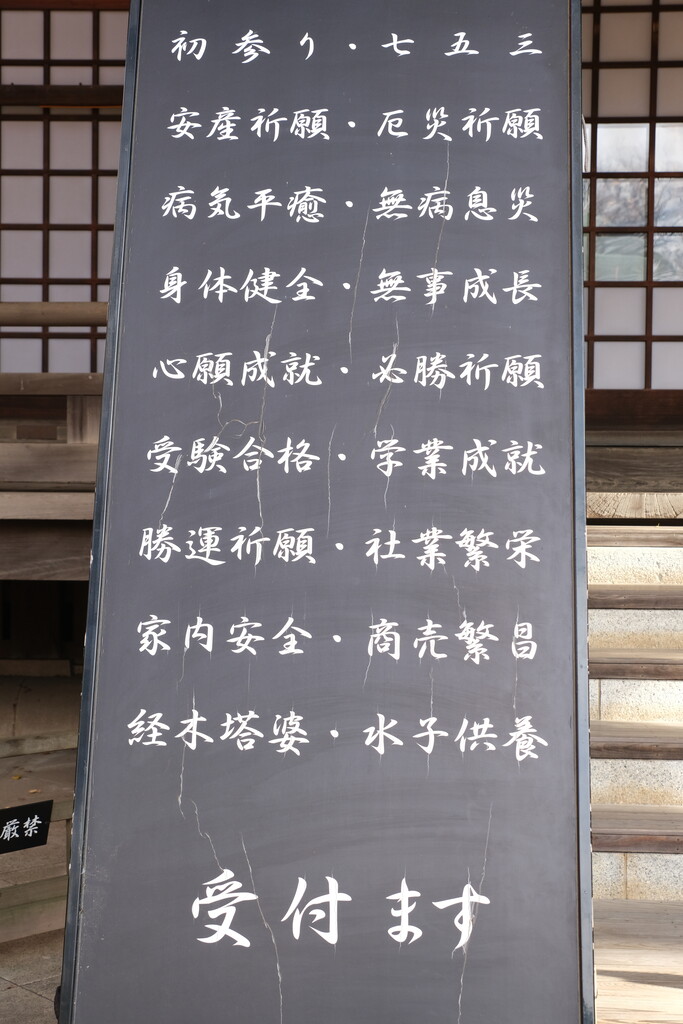 初参り・七五三
安産祈願・厄災祈願
病気平癒・無病息災
身体健全・無事成長
心願成就・必勝祈願
受験合格・学業成就
勝運祈願・社業繁栄
家内安全・商売繁昌
経木塔婆・水子供養
受付ます
厳禁